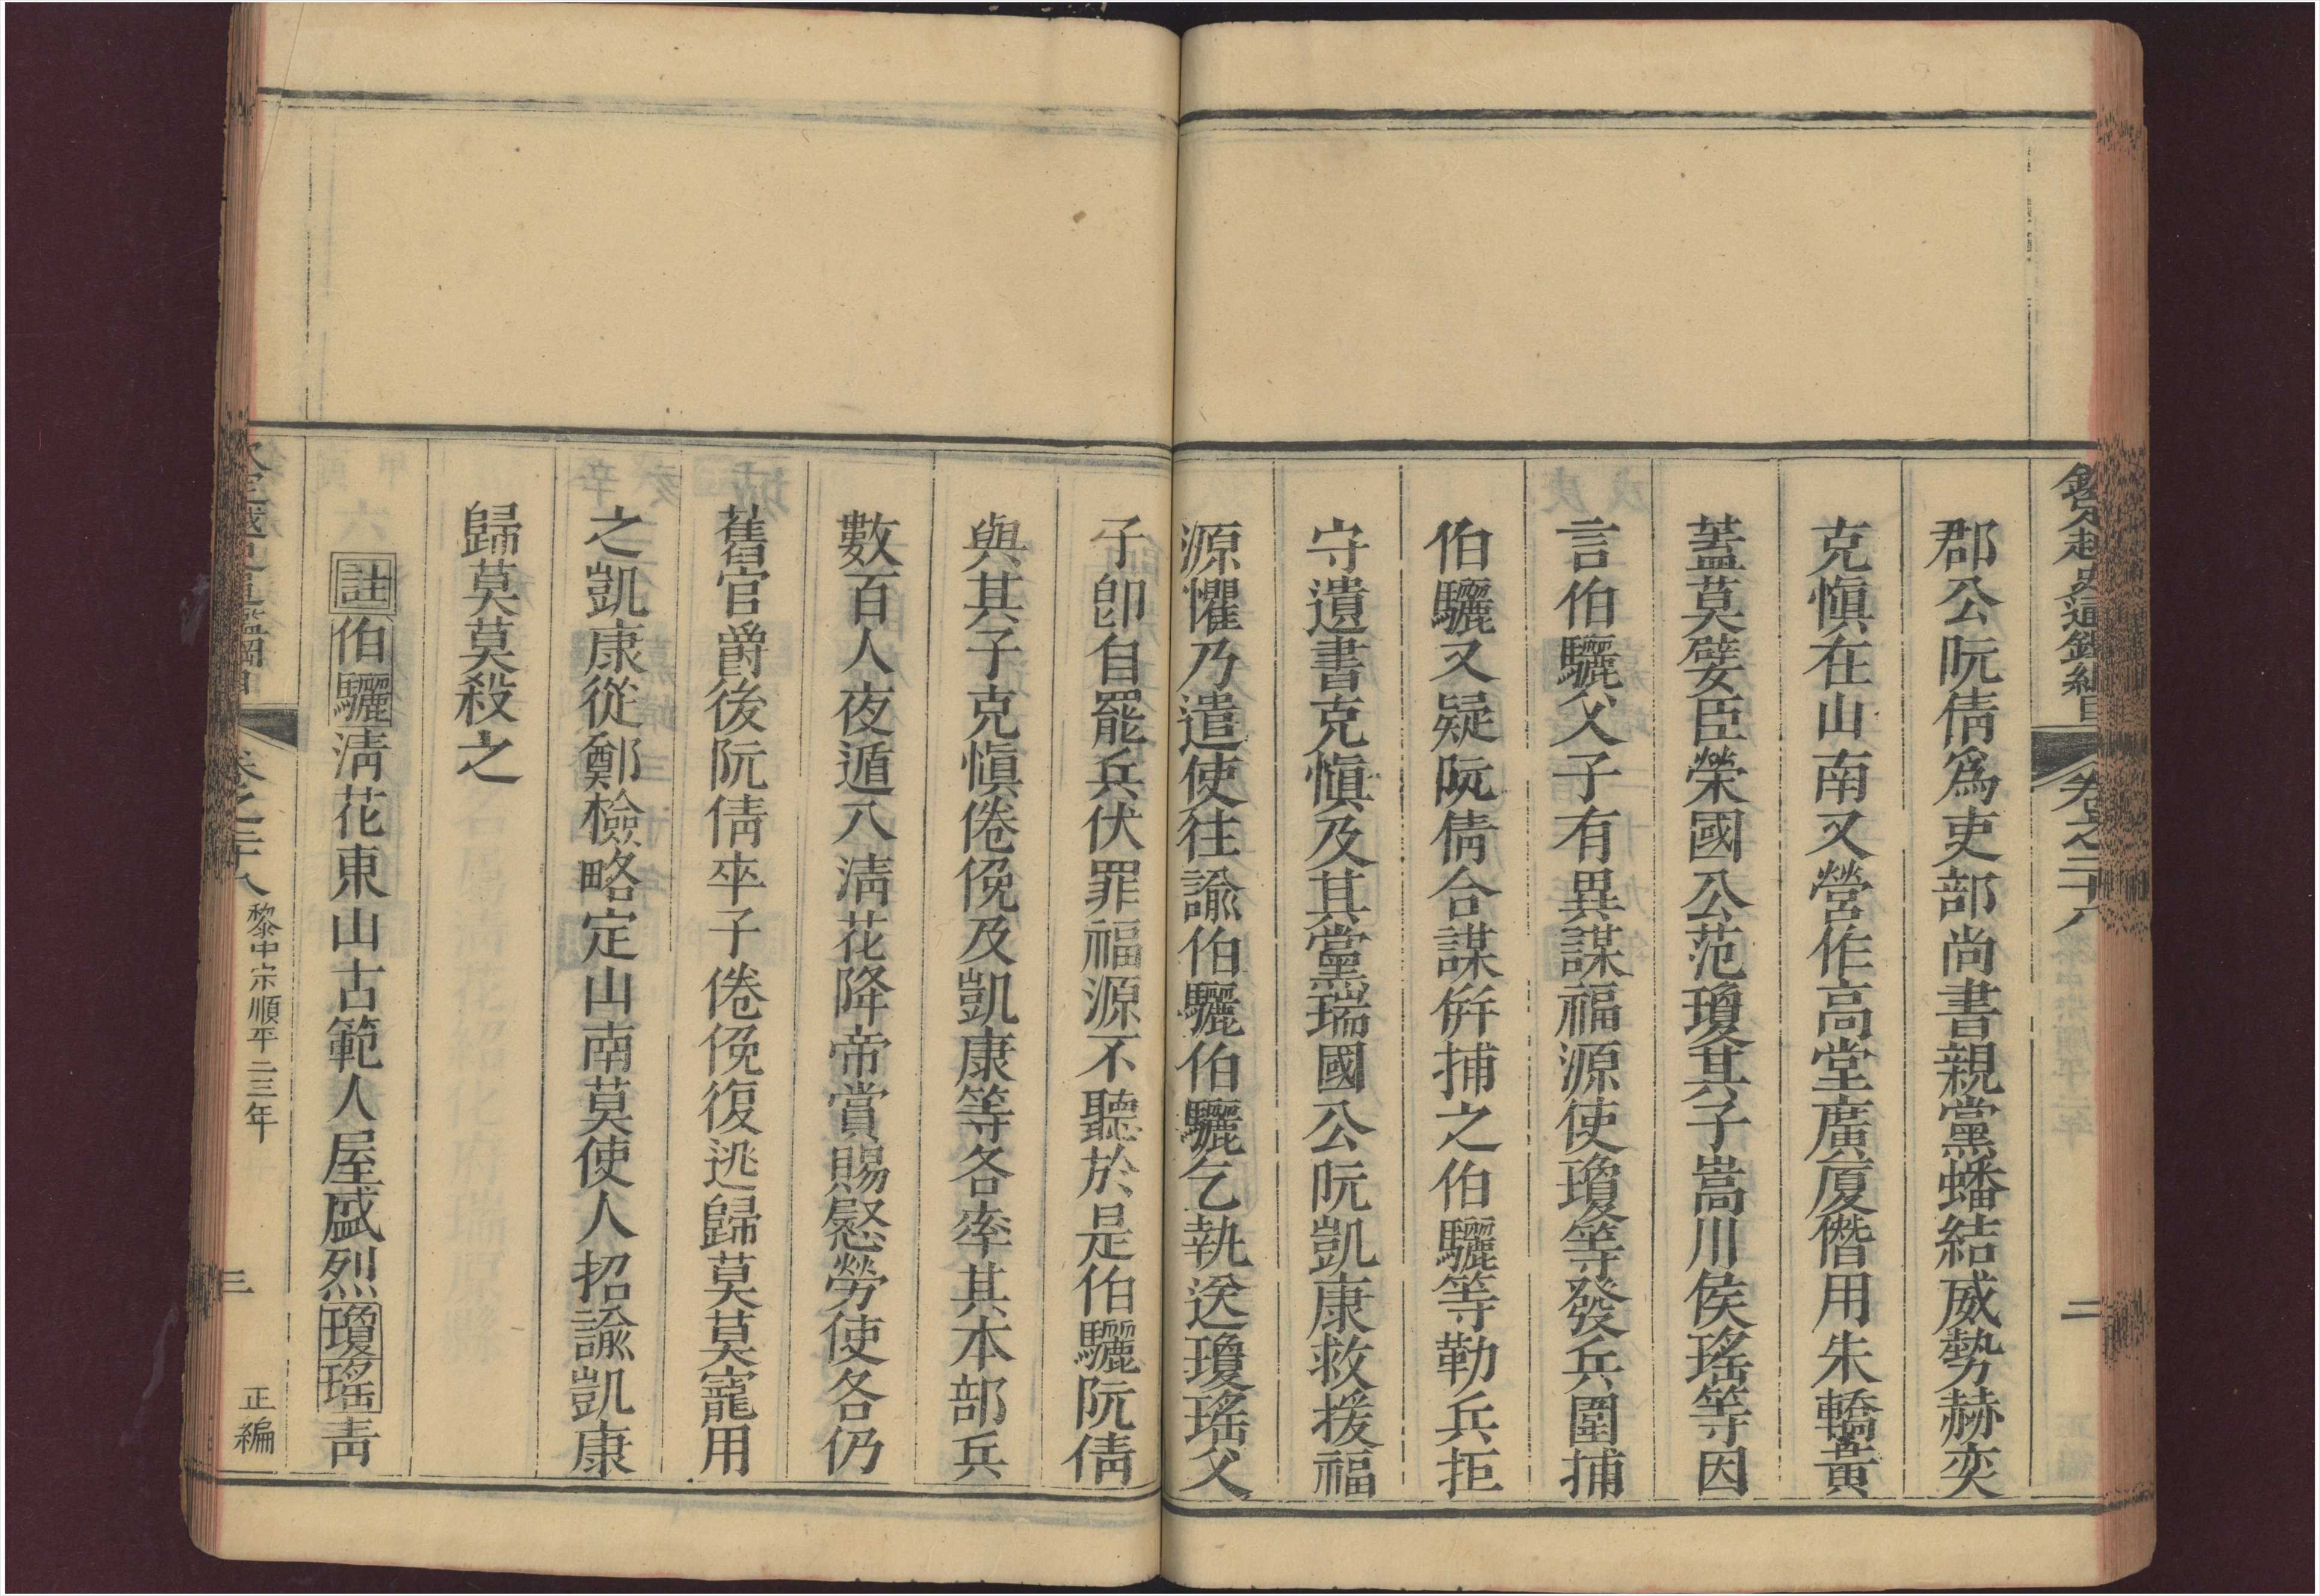 鑑越史通鑑綱目
卷之二十八
二
郡公阮倩爲吏部尚書親黨蟠結威勢赫奕
克愼在山南又營作高堂廣厦僭用朱轎黃
蓋莫嬖臣榮國公范瓊其子嵩川侯瑤等因
言伯驪父子有異謀福源使瓊等發兵圍捕
伯驪又疑阮倩合謀倂捕之伯驪等勒兵拒
守遺書克愼及其黨瑞國公阮凱康救援福
源懼乃遣使往諭伯驪伯驪乞執送瓊瑤父
子卽自罷兵伏罪福源不聽於是伯驪阮倩
與其子克愼倦俛及凱康等各率其本部兵
數百人夜遁入淸花降帝賞賜慰勞使各仍
舊官爵後阮倩卒子倦俛復逃歸莫莫寵用
之凱康從鄭檢略定山南莫使人招諭凱康
歸莫莫殺之
註伯驪淸花東山古範人屋盛烈瓊瑤靑
卷之二十八
黎中宗順平二三年
三
正編